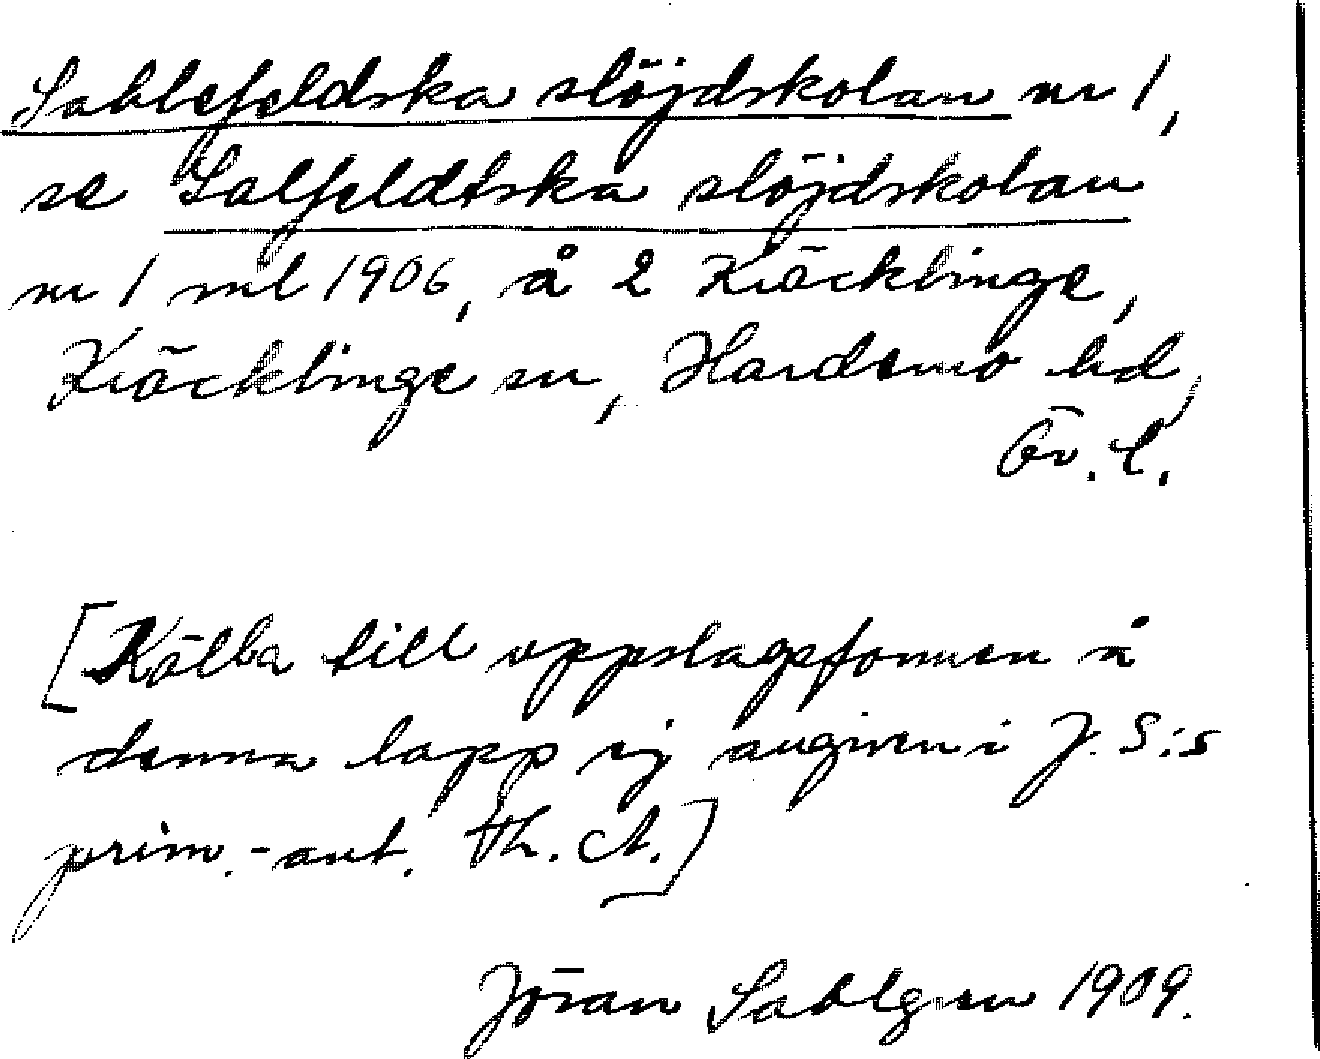 Sahlefeldska slöjdskolan nr 1,
se Salfeldtska slöjdskolan
nr 1 ml 1906, å 2 Kräcklinge,
Kräcklinge sn, Hardemo hd,
Ör. l.
[Källa till uppslagsformen å
denna lapp ej angiven i J. S:s
prim.-ant. Th. A.]
Jöran Sahlgren 1909.